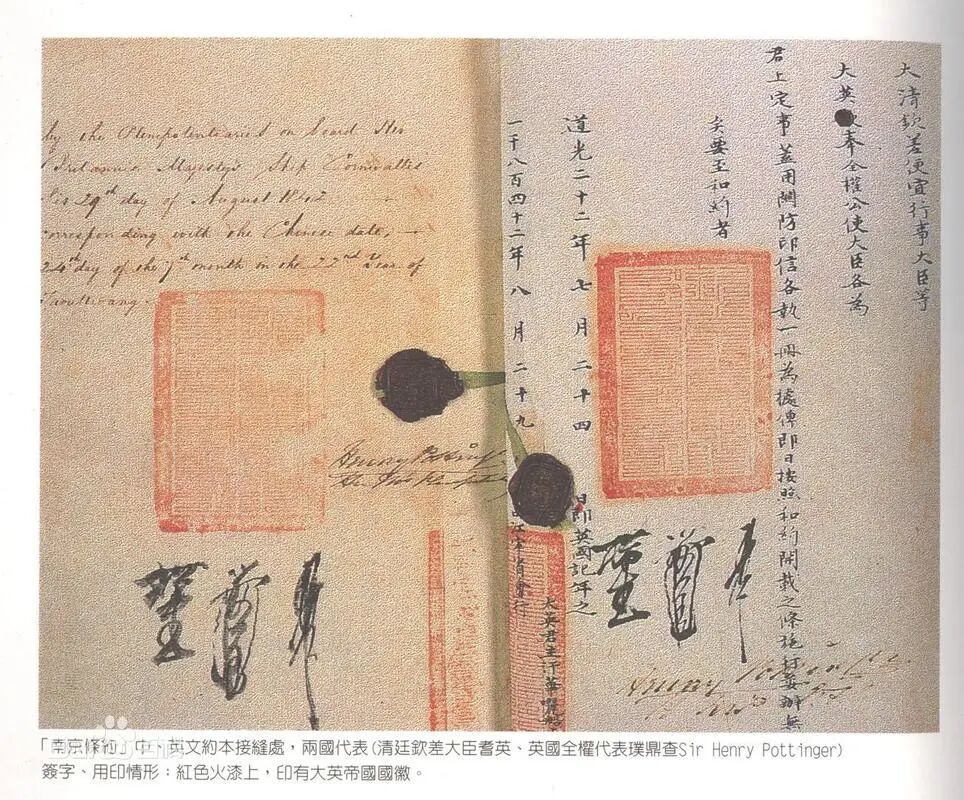 by the Plenipotentiaries on board Her
Britannic Majesty's Ship Cornwallis
this 29th day of August 1842
corresponding with the Chinese date,
24th day of the 7th month in the 22nd Year of
Taoukwang.
Henry Pottinger
大清欽差便宜行事大臣等
大英奉全權公使大臣各為
君上定事蓋用關防印信各執一冊為據俾即日按照和約開載之條施行妥辦無
矣要至和約者
道光二十二年七月二十四日即英國記年之
一千八百四十二年八月二十九江寧省會行
大英君主汗華麗船
Henry Pottinger
「南京條約」中、英文約本接縫處，兩國代表(清廷欽差大臣耆英、英國全權代表璞鼎查Sir Henry Pottinger)
簽字、用印情形：紅色火漆上，印有大英帝國國徽。